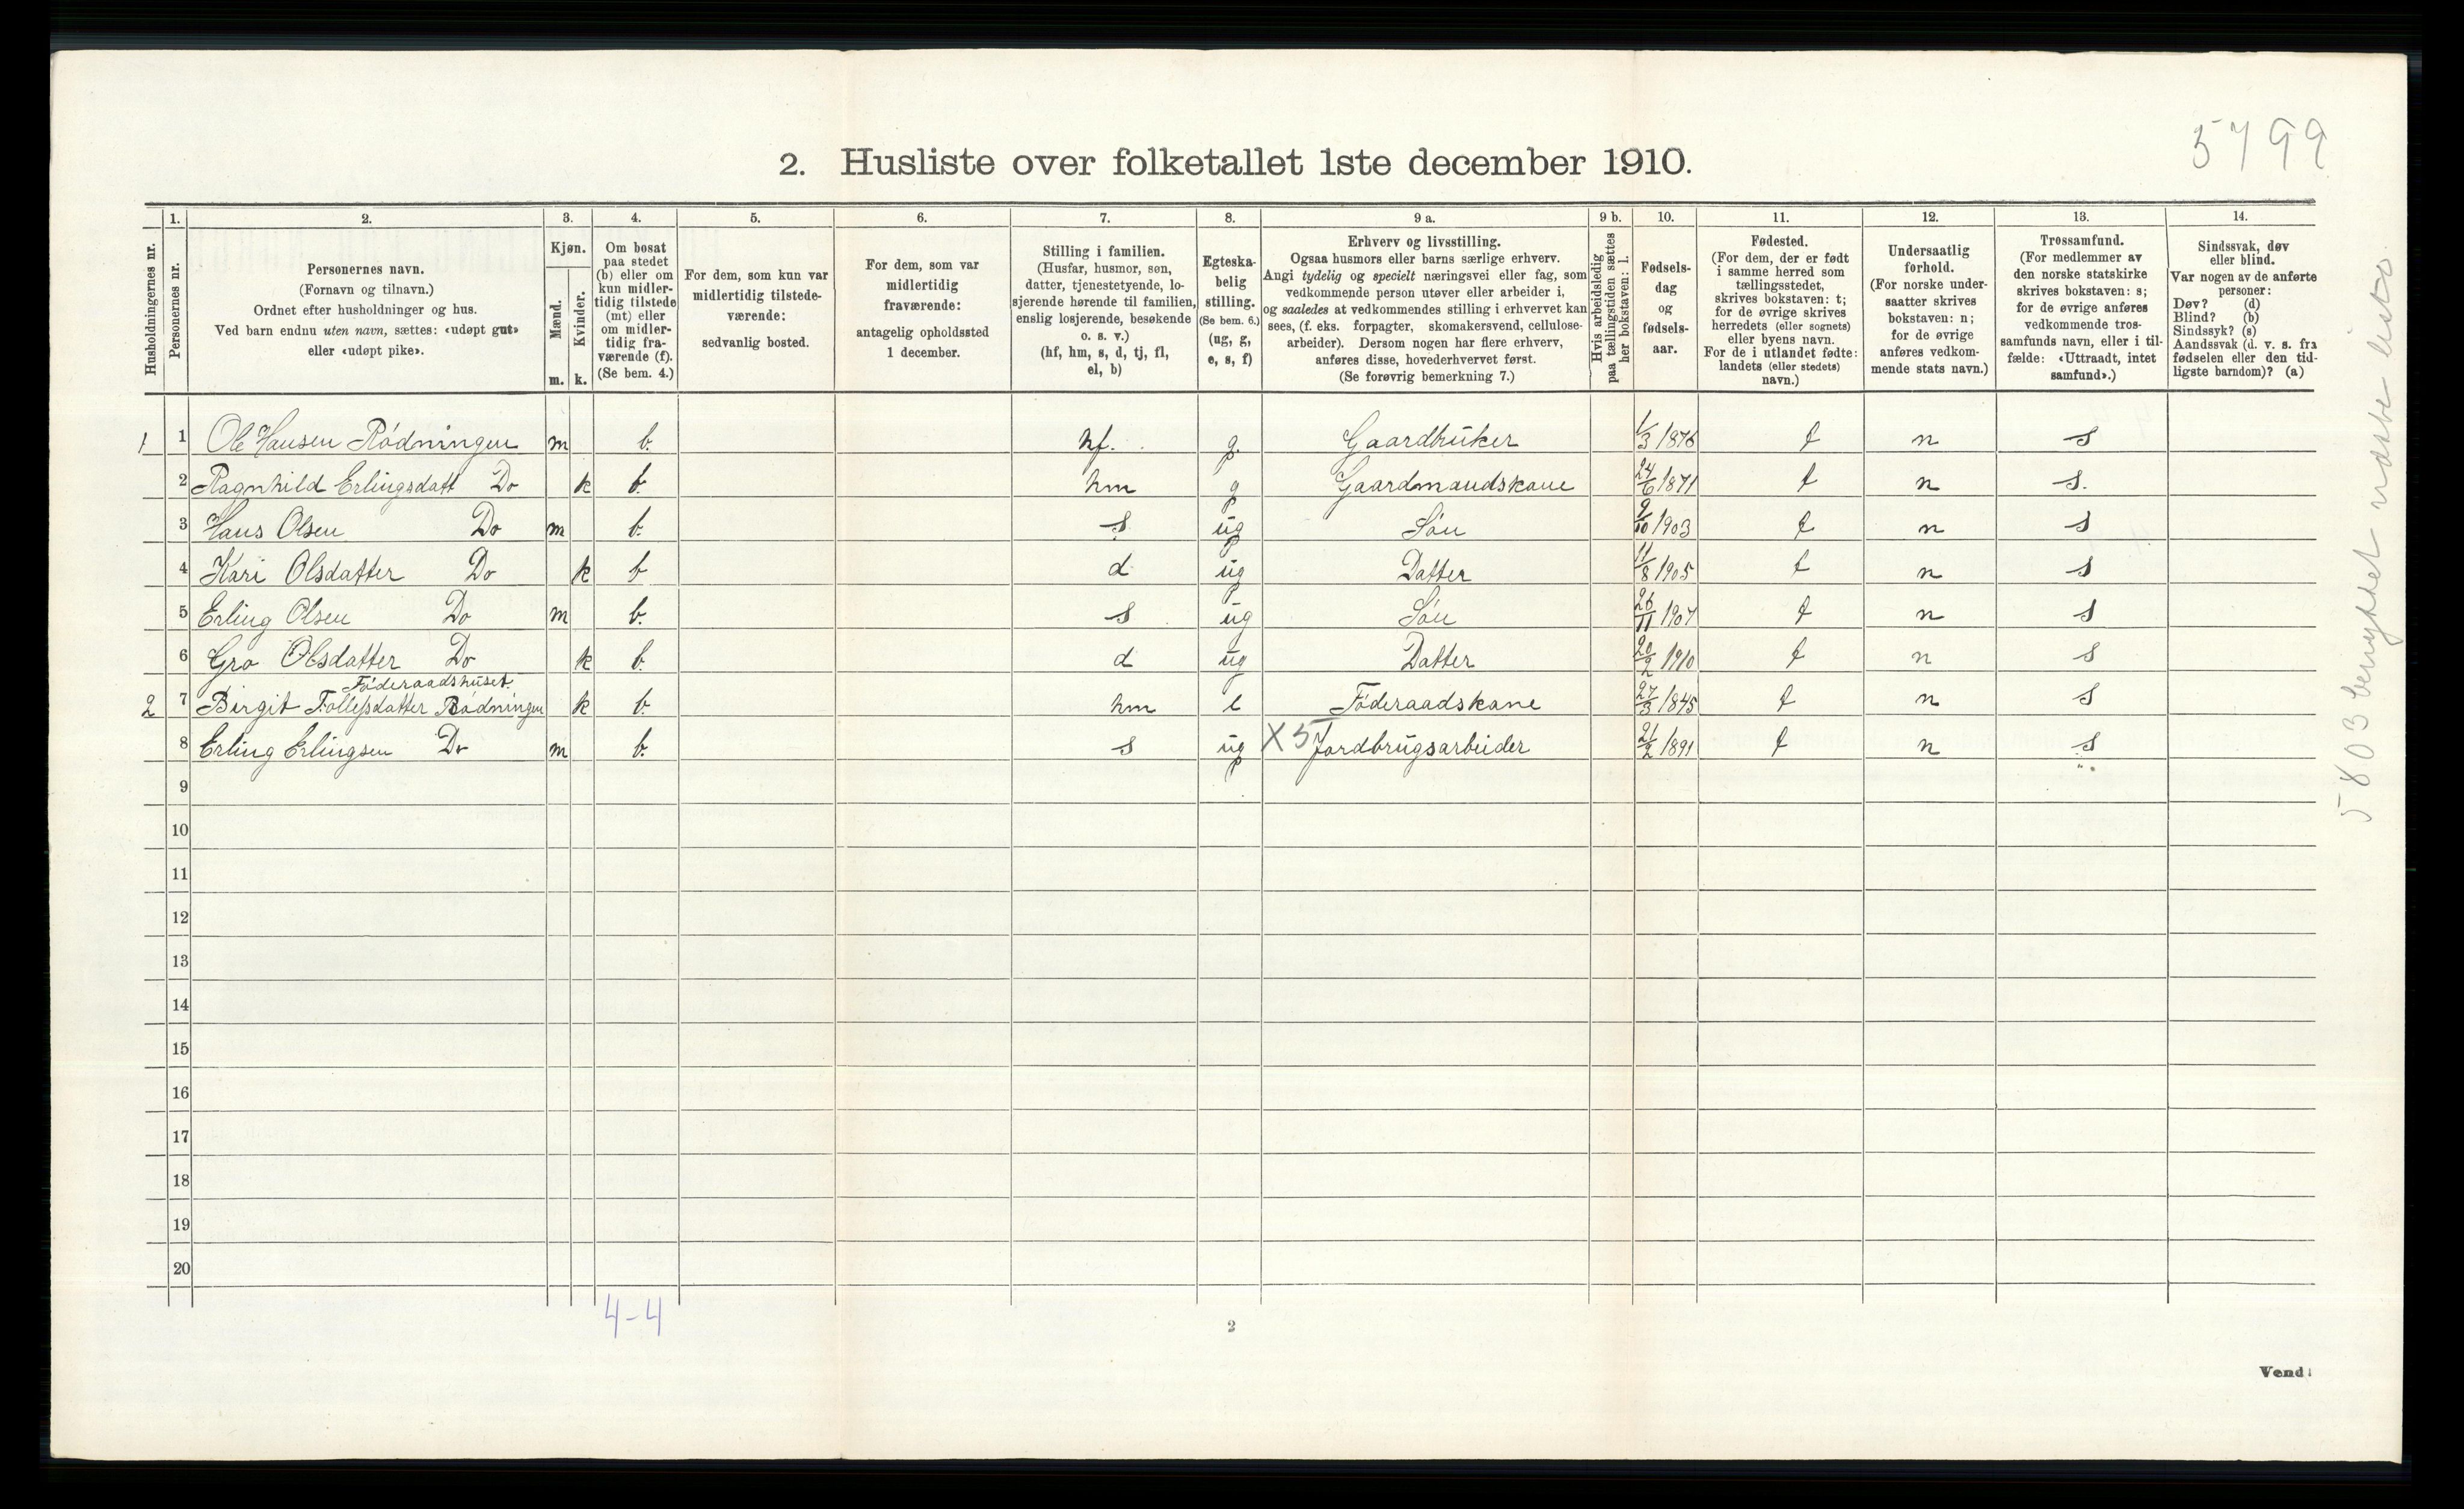 5799
2. Husliste over folketallet 1ste december 1910.
Husholdningernes nr.
1.
Personernes nr.
2.
Personernes navn.
(Fornavn og tilnavn.)
Ordnet efter husholdninger og hus.
Ved barn endnu uten navn, sættes: «udøpt gut»
eller «udøpt pike».
3.
Kjøn.
Mænd.
m.
Kvinder.
k.
4.
Om bosat
paa stedet
(b) eller om
kun midler-
tidig tilstede
(mt) eller
om midler-
tidig fra-
værende (f).
(Se bem. 4.)
5.
For dem, som kun var
midlertidig tilstede-
værende:
sedvanlig bosted.
6.
For dem, som var
midlertidig
fraværende:
antagelig opholdssted
1 december.
7.
Stilling i familien.
(Husfar, husmor, søn,
datter, tjenestetyende, lo-
sjerende hørende til familien,
enslig losjerende, besøkende
o. s. v.)
(hf, hm, s, d, tj, fl,
el, b)
8.
Egteska-
belig
stilling.
(Se bem. 6.)
(ug, g,
e, s, f)
9 a.
Erhverv og livsstilling.
Ogsaa husmors eller barns særlige erhverv.
Angi tydelig og specielt næringsvei eller fag, som
vedkommende person utøver eller arbeider i,
og saaledes at vedkommendes stilling i erhvervet kan
sees, (f. eks. forpagter, skomakersvend, cellulose-
arbeider). Dersom nogen har flere erhverv,
anføres disse, hovederhvervet først.
(Se forøvrig bemerkning 7.)
9 b.
Hvis arbeidsledig
paa tællingstiden sættes
her bokstaven: l.
10.
Fødsels-
dag
og
fødsels-
aar.
11.
Fødested.
(For dem, der er født
i samme herred som
tællingsstedet,
skrives bokstaven: t;
for de øvrige skrives
herredets (eller sognets)
eller byens navn.
For de i utlandet fødte:
landets (eller stedets)
navn.)
12.
Undersaatlig
forhold.
(For norske under-
saatter skrives
bokstaven: n;
for de øvrige
anføres vedkom-
mende stats navn.)
13.
Trossamfund.
(For medlemmer av
den norske statskirke
skrives bokstaven: s;
for de øvrige anføres
vedkommende tros-
samfunds navn, eller i til-
fælde: «Uttraadt, intet
samfund».)
14.
Sindssvak, døv
eller blind.
Var nogen av de anførte
personer:
Døv? (d)
Blind? (b)
Sindssyk? (s)
Aandssvak (d. v. s. fra
fødselen eller den tid-
ligste barndom)? (a)
1 1 Ole Hansen Rødningen m b. hf. g. Gaardbruker 1/3 1876 t n s
2 Ragnhild Erlingsdatt Do k b. hm g Gaardmandskane 24/6 1871 t n s.
3 Hans Olsen Do m b. s ug Søn 9/10 1903 t n s
4 Kari Olsdatter Do k b d ug Datter 11/8 1905 t n s
5 Erling Olsen Do m b. s ug Søn 26/11 1907 t n s
6 Gro Olsdatter Do k b. d ug Datter 20/2 1910 t n s
Føderaadshuset.
2 7 Birgit Tollefsdatter Rødningen k b. hm e Føderaadskane 27/3 1845 t n s
8 Erling Erlingsen Do m b. s ug X5 Jordbrugsarbeider 21/2 1891 t n s
9
10
11
12
13
14
15
16
17
18
19
20
4-4
2
Vend!
5803 benyttet næste liste